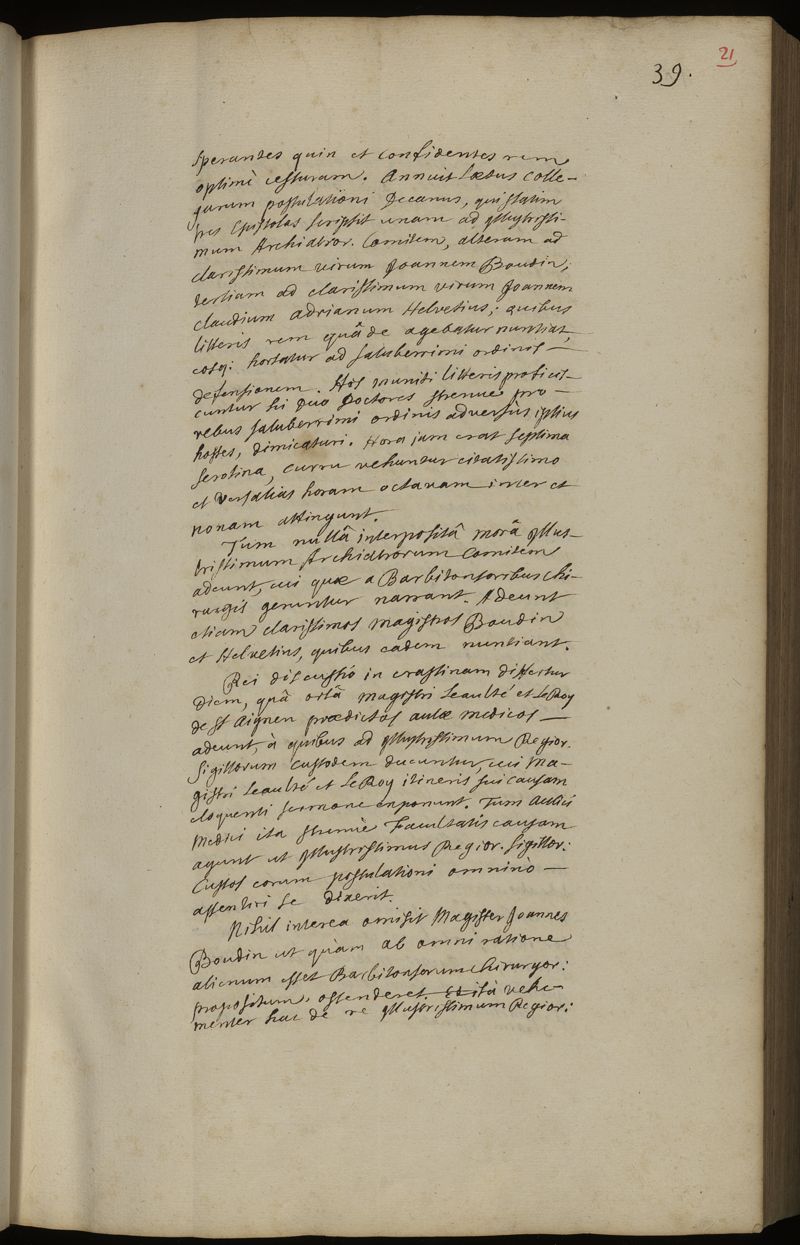 21
39.
sperantes quin et confidentes rem
optimè cessuram. Annuit lætus colle-
garum postulationi Decanus, qui statim
tres Epistolas scripsit unam ad Illustrissi-
mum Archiatror. Comitem, alteram ad
clarissimum virum Joannem Boudin;
tertiam ad clarissimum virum Joannem
Claudium adrianum Helvetius; quibus
litteris rem quâ de agebatur nuntiat,
eosq; hortatur ad saluberrimi ordinis
defensionem. His muniti litteris proficis-
cuntur hi duo Doctores strenuè pro
rebus saluberrimi ordinis adversùs istius
hostes, dimicaturi. Hora jam erat septima
serotina, curru vehuntur citatissimo
et Versalias horam octavam inter et
nonam attingunt.
Tum nullâ interpositâ morâ Illus-
trissimum Archiatrorum Comitem
adeunt, cui quæ a Barbitonsoribus Chi-
rurgis geruntur narrant. Adeunt
etiam clarissimos Magistros Boudin
et Helvetius, quibus eadem nuntiant.
Rei discussio in crastinam differtur
diem, quâ ortâ Magistri Leaulté et LeRoy
de St Aignen prædictos aulæ medicos
adeunt, à quibus ad Illustrissimum Regior.
Sigillorum Custodem ducuntur, cui Ma-
gistri Leaulté et LeRoy itineris sui causam
eloquenti sermone exponunt. Tum Aulici
Medici ita strenuè Facultatis causam
agunt ut Illustrissimus Regior. Sigillor:
Custos eorum postulationi omninò
assentiri se dixerit.
Nihil interea omisit Magister Joannes
Boudin ut quàm ab omni ratione
alienum esset Barbitonsorum Chirurgor:
propositum, ostenderet. et ità vehe-
menter hac de re Illustrissimum Regior: